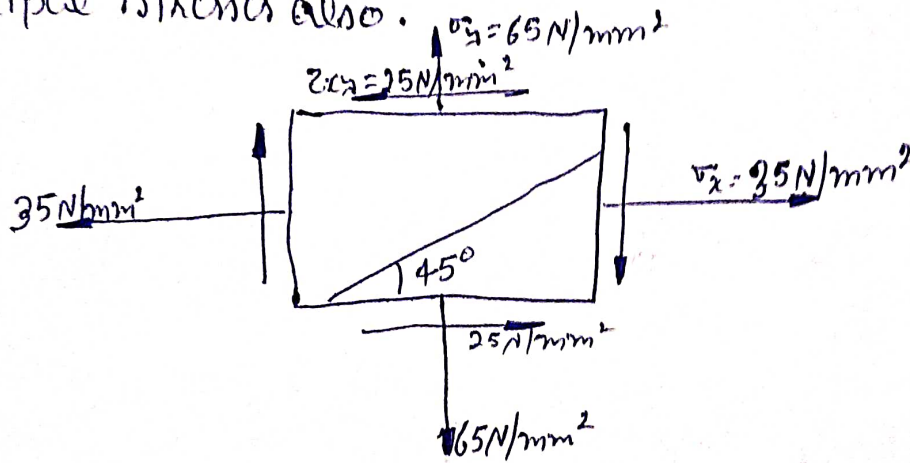 also.
σy = 65 N/mm²
τxy = 25 N/mm²
35 N/mm²
σx = 35 N/mm²
45°
25 N/mm²
65 N/mm²